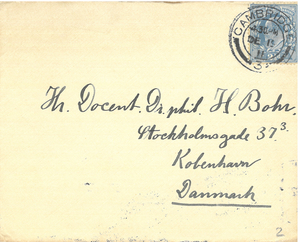 CAMBRIDGE
Hr. Docent. Dr. phil. H. Bohr.
Stockholmsgade 37³.
København
Danmark
2